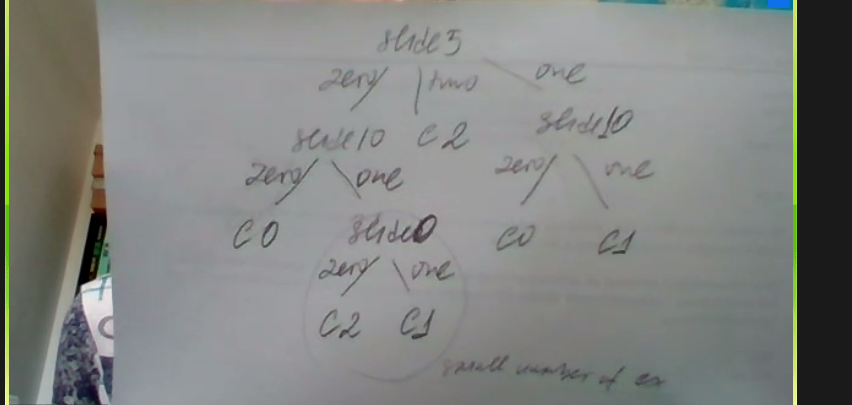 slide5
zero two one
slide10 C2 slide10
zero one zero one
C0 slide0 C0 C1
zero one
C2 C1
small number of ex